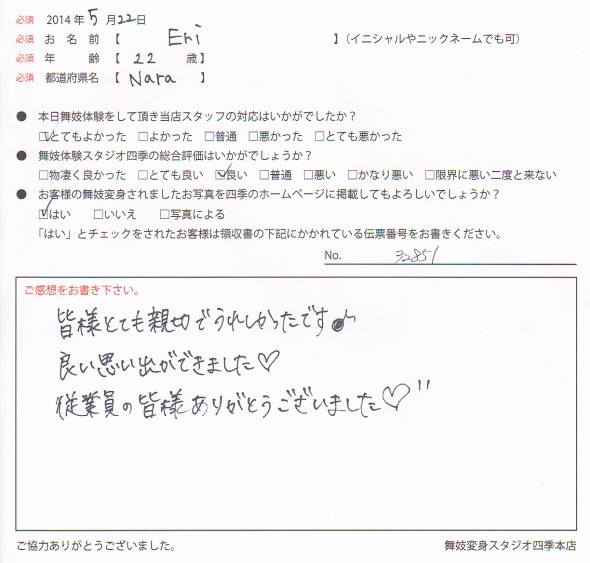 必須 2014年5月22日
必須 お名前【 Eri 】(イニシャルやニックネームでも可)
必須 年齢【 22 歳】
必須 都道府県名【 Nara 】
● 本日舞妓体験をして頂き当店スタッフの対応はいかがでしたか？
☑とてもよかった □よかった □普通 □悪かった □とても悪かった
● 舞妓体験スタジオ四季の総合評価はいかがでしょうか？
□物凄く良かった □とても良い ☑良い □普通 □悪い □かなり悪い □限界に悪い二度と来ない
● お客様の舞妓変身されましたお写真を四季のホームページに掲載してもよろしいでしょうか？
☑はい □いいえ □写真による
「はい」とチェックをされたお客様は領収書の下記にかかれている伝票番号をお書きください。
No. 32851
ご感想をお書き下さい。
皆様とても親切でうれしかったです♪
良い思い出ができました♡
従業員の皆様ありがとうございました♡"
ご協力ありがとうございました。
舞妓変身スタジオ四季本店